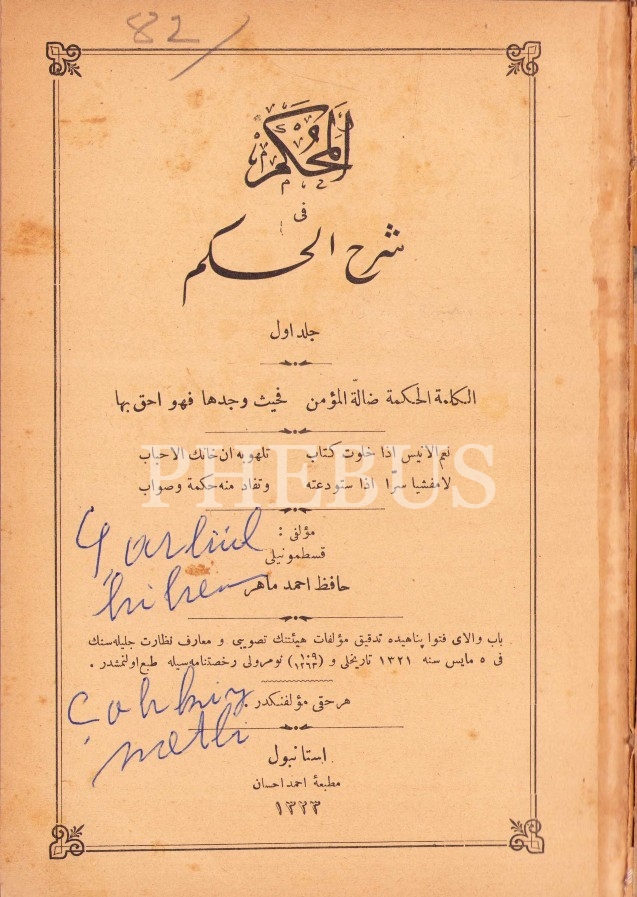 82/
المحكم
فى
شرح الحكم
جلد اول
الكلمة الحكمة ضالّة المؤمن فحيث وجدها فهو احق بها
نعم الانيس اذا خلوت كتاب تلهو به ان خانك الاحباب
لامفشيا سرّا اذا ستودعته وتفاد منه حكمة وصواب
PHEBUS
مؤلفى :
قسطمونيلى
حافظ احمد ماهر
باب والاى فتوا پناهيده تدقيق مؤلفات هيئتنك تصويبى و معارف نظارت جليله سنك
فى ٥ مايس سنه ١٣٢١ تاريخلى و نومرولى رخصتنامه سيله طبع اولنمشدر .
هر حقى مؤلفنكدر .
استانبول
مطبعۀ احمد احسان
١٣٢٣